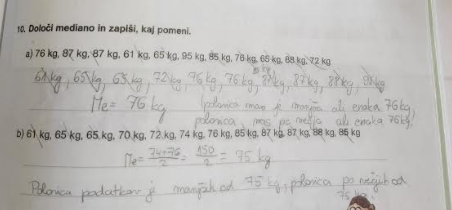 10. Določi mediano in zapiši, kaj pomeni.
a) 76 kg, 87 kg, 87 kg, 61 kg, 65 kg, 95 kg, 85 kg, 76 kg, 65 kg, 88 kg, 72 kg
61 kg, 65 kg, 65 kg, 72 kg, 76 kg, 76 kg, 87 kg, 87 kg, 88 kg, 95 kg
Me = 76 kg
polovica mas je manjša ali enaka 76 kg,
polovica mas pa večja ali enaka 76 kg.
b) 61 kg, 65 kg, 65 kg, 70 kg, 72 kg, 74 kg, 76 kg, 85 kg, 87 kg, 87 kg, 88 kg, 85 kg
Me = 74+76/2 = 150/2 = 75 kg
Polovica podatkov je manjših od 75 kg, polovica pa večjih od
75 kg.